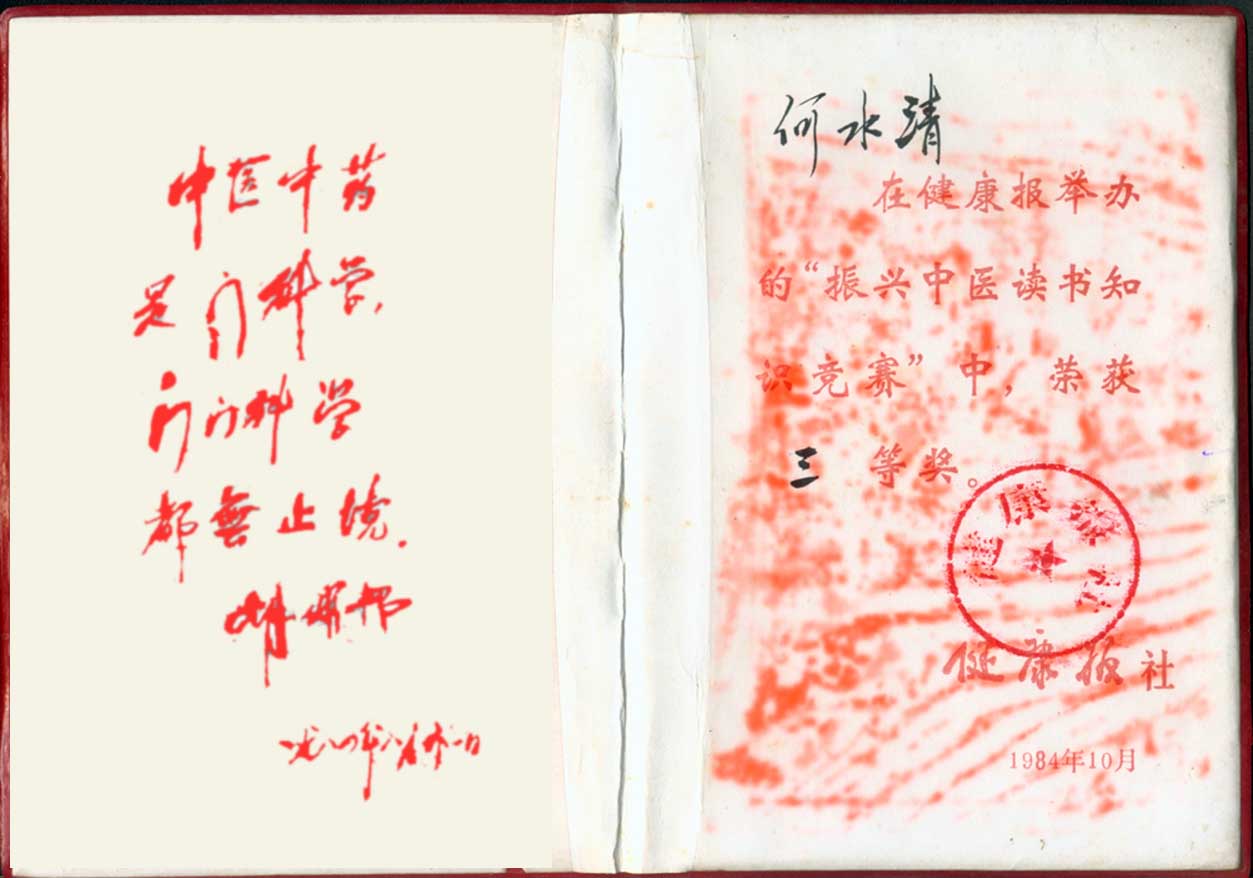 中医中药
是门科学，
门门科学
都無止境.
一九八四年八月
何水清
在健康报举办
的“振兴中医读书知
识竞赛”中，荣获
三 等奖。
健康报社
健康报社
1984年10月